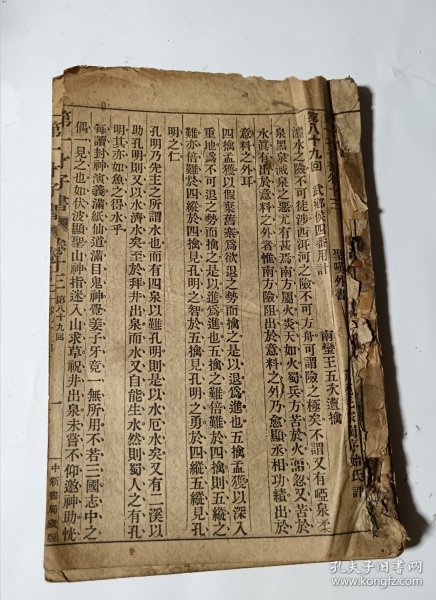 聖嘆外書
第八十九回　武鄉侯四番用計　南蠻王五次遭擒
瀘水之險不可徒涉西洱河之險不可方舟可謂險之極矣不謂又有啞泉柔
泉黑泉滅泉之惡尤有甚焉南方屬火炎天如火蜀兵方苦於火而忽又苦於
水眞有出於意料之外者惟南方險阻出於意料之外乃愈顯丞相功績出於
意料之外耳
四擒孟獲以假棄舊寨爲欲退之勢而擒之是以退爲進也五擒孟獲以深入
重地爲不可退之勢而擒之是以進爲進也六擒之難倍難於四擒
難亦倍難於四擒見孔明之智於五擒見孔明之勇於四縱五縱見孔
明之仁
孔明乃先主之所謂水也而有四泉以難孔明則是以水厄水矣又有二溪以
助孔明則又以水濟水矣至於拜井出泉而水又自能生水然則蜀人之有孔
明其亦如魚之得水乎
每讀封神演義滿紙仙道滿目鬼神覺姜子牙竟一無所用不若三國志中之
偶一見之也如伏波顯聖山神指迷入山求草祝井出泉未嘗不仰邀神助恍
第一才子書
卷十二
第八十九回
一
中新書局藏版
孔夫子旧书网
www.kongfz.com